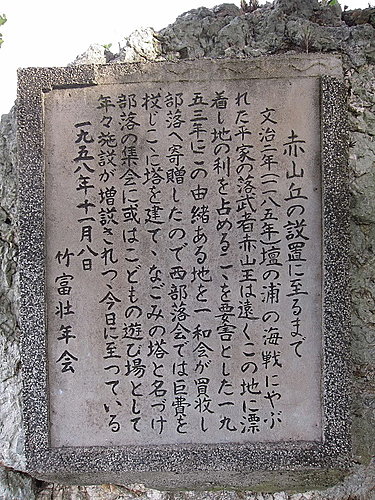 赤山丘の設置に至るまで
文治二年(一一八五年)壇の浦の海戦にやぶ
れた平家の落武者赤山王は遠くこの地に漂
着し地の利を占めるこゝを要害とした一九
五三年にこの由緒ある地を一和会が買収し
部落へ寄贈したので西部落会では巨費を
投じこゝに塔を建て、なごみの塔と名づけ
部落の集会に或はこどもの遊び場として
年々施設が増設されつゝ今日に至っている
一九五八年十一月八日
竹富壮年会